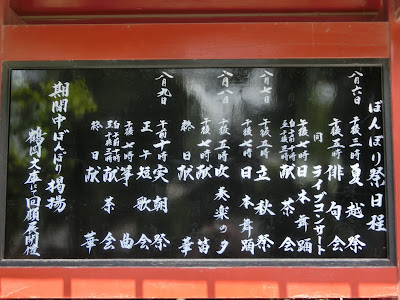 ぼんぼり祭日程
八月六日 午後三時 夏越祭
午後五時 俳句会
同 ライブコンサート
午後七時 日本舞踊
献茶会
八月七日 午後五時 立秋祭
午後七時 日本舞踊
八月八日 午後五時 吹奏楽の夕
午後七時 献笛
終日 献華
八月九日 午前十時 実朝祭
正午 短歌会
午後七時 箏曲
献茶会
終日 献華
期間中ぼんぼり掲揚
鶴岡文庫にて回顧展開催